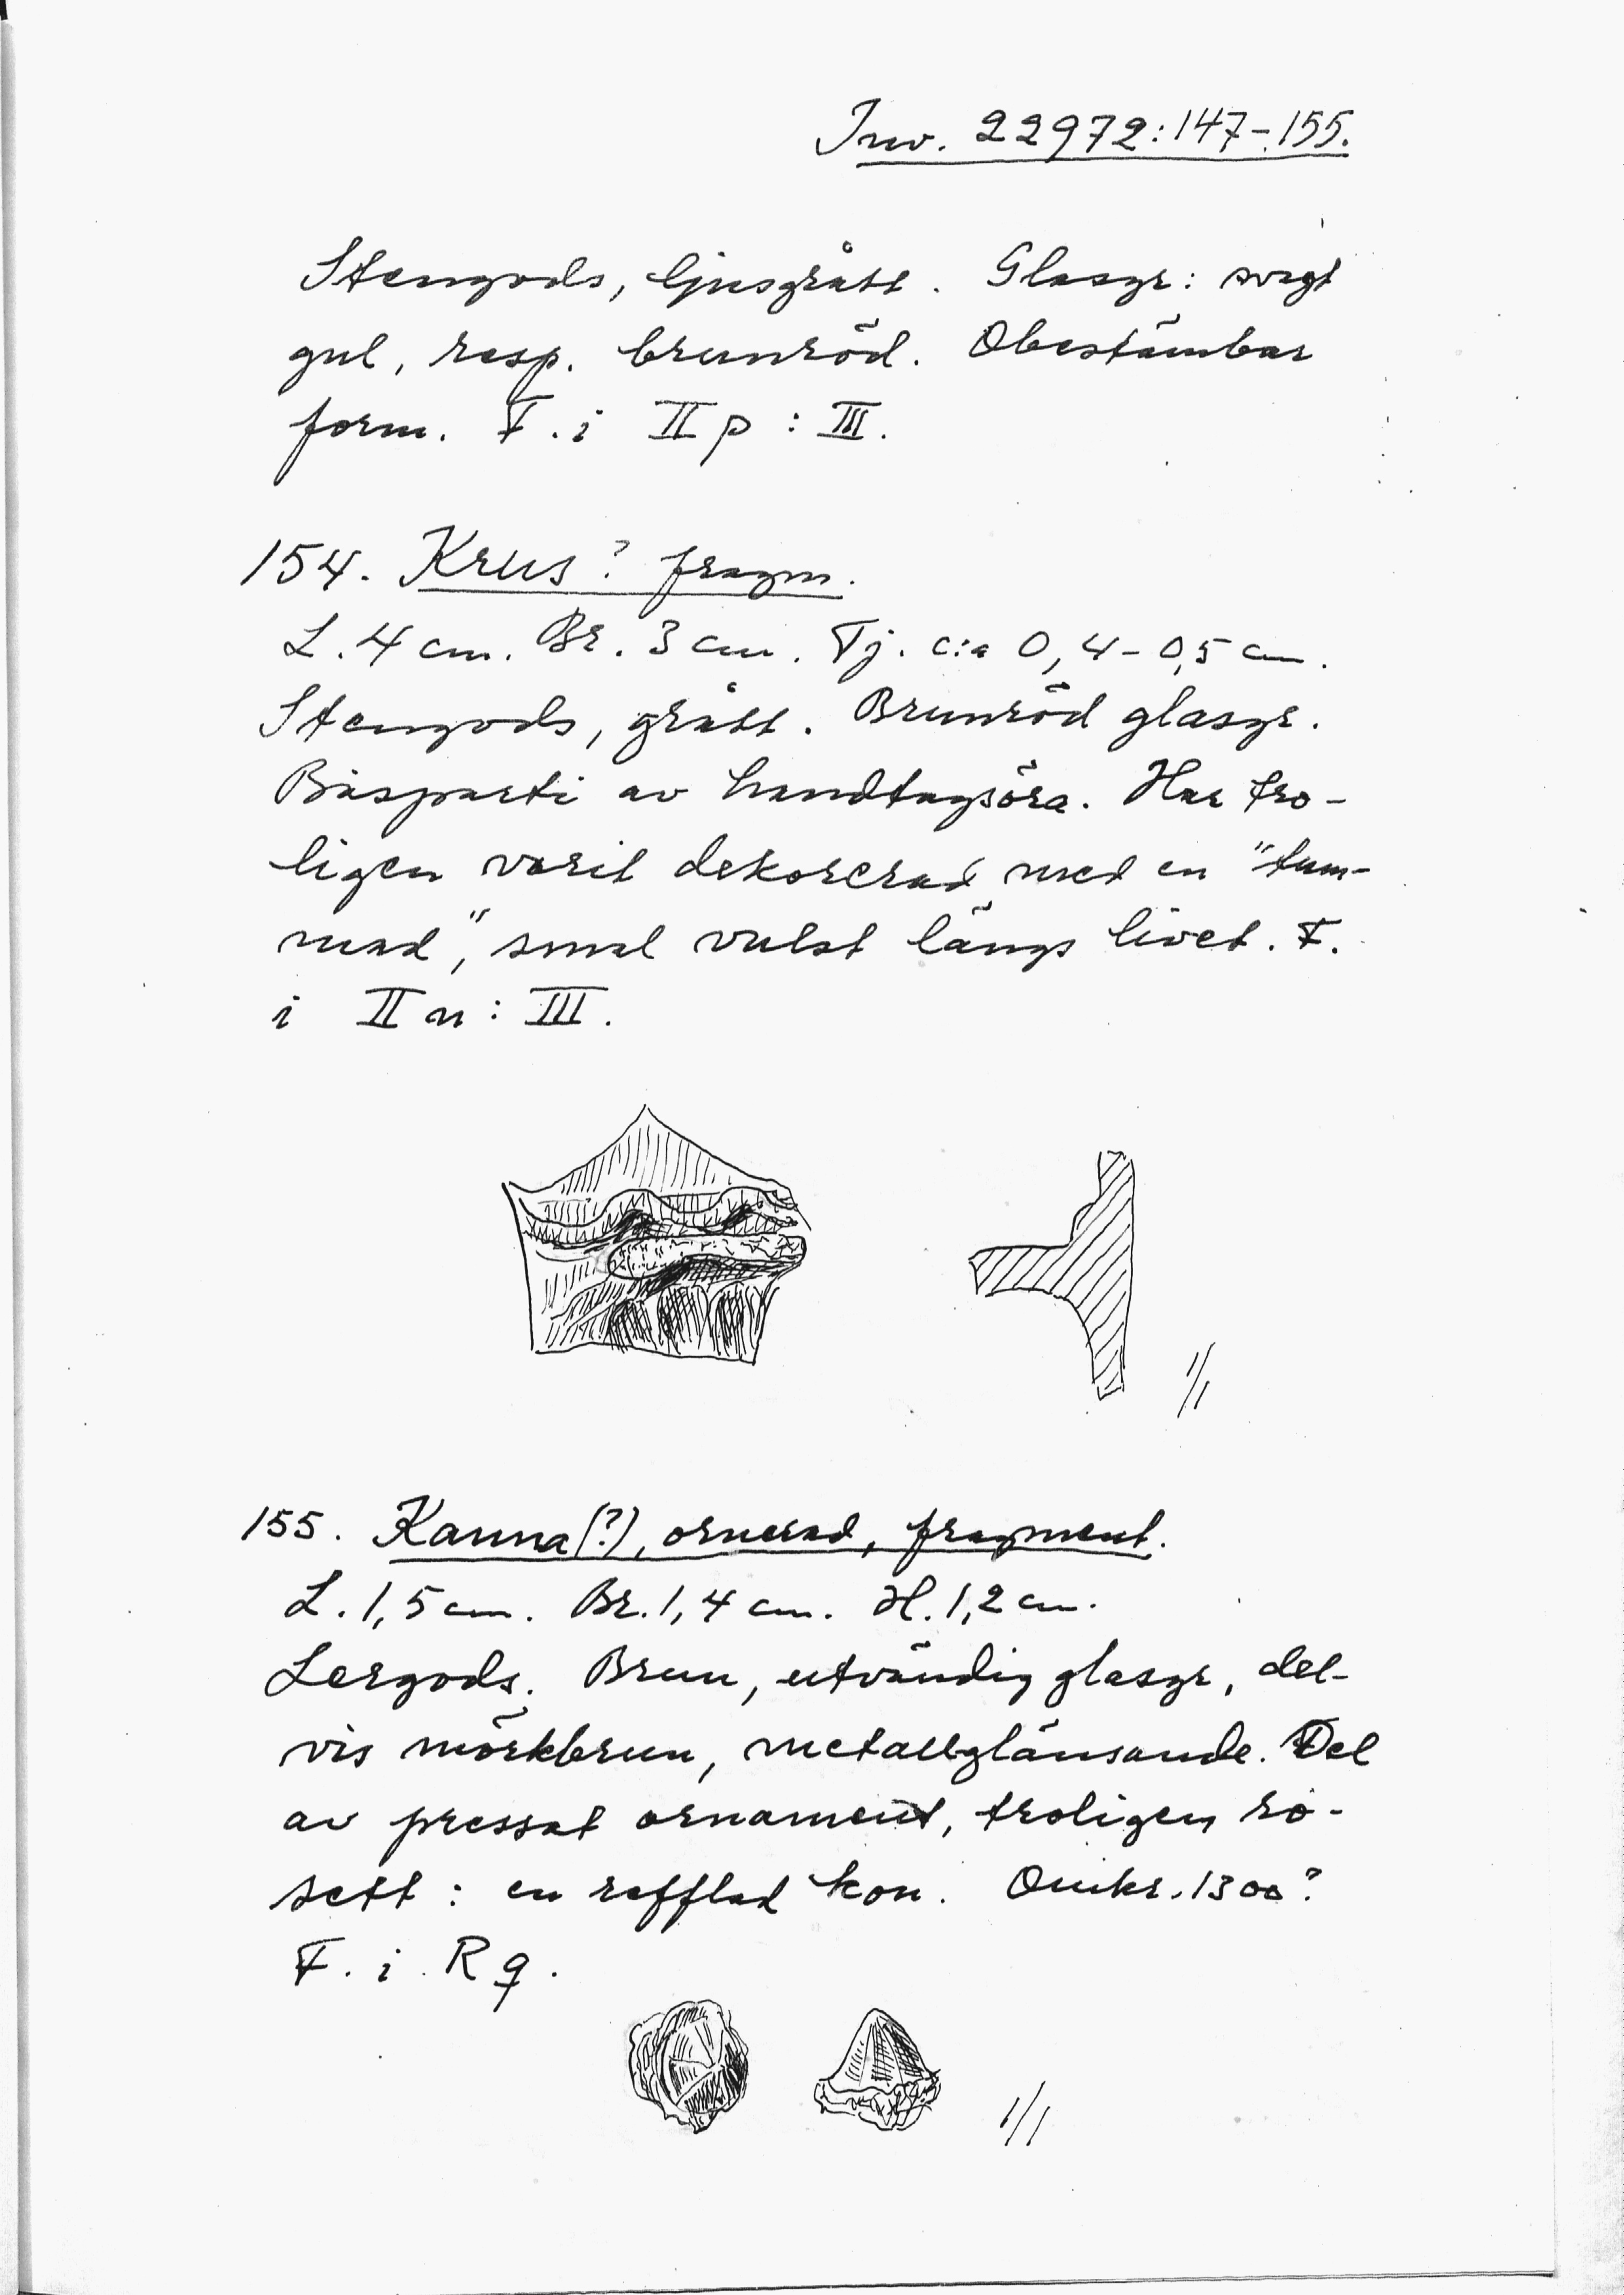 Inv. 22972:147-155.
Stengods, ljusgrått. Glasyr: svagt
gul, resp. brunröd. Obestämbar
form. F. i II p : III.
154. Krus? fragm.
L. 4 cm. Br. 3 cm. Tj. c:a 0,4-0,5 cm.
Stengods, grått. Brunröd glasyr.
Basparti av handtagsöra. Har tro-
ligen varit dekorerad med en "tum-
mad", smal vulst längs livet. F.
i II n : III.
1/1
155. Kanna(?), ornerad, fragment.
L. 1,5 cm. Br. 1,4 cm. H. 1,2 cm.
Lergods. Brun, utvändig glasyr, del-
vis mörkbrun, metallglänsande. Del
av pressat ornament, troligen ro-
sett : en refflad kon. Omkr. 1300?
F. i R q.
1/1